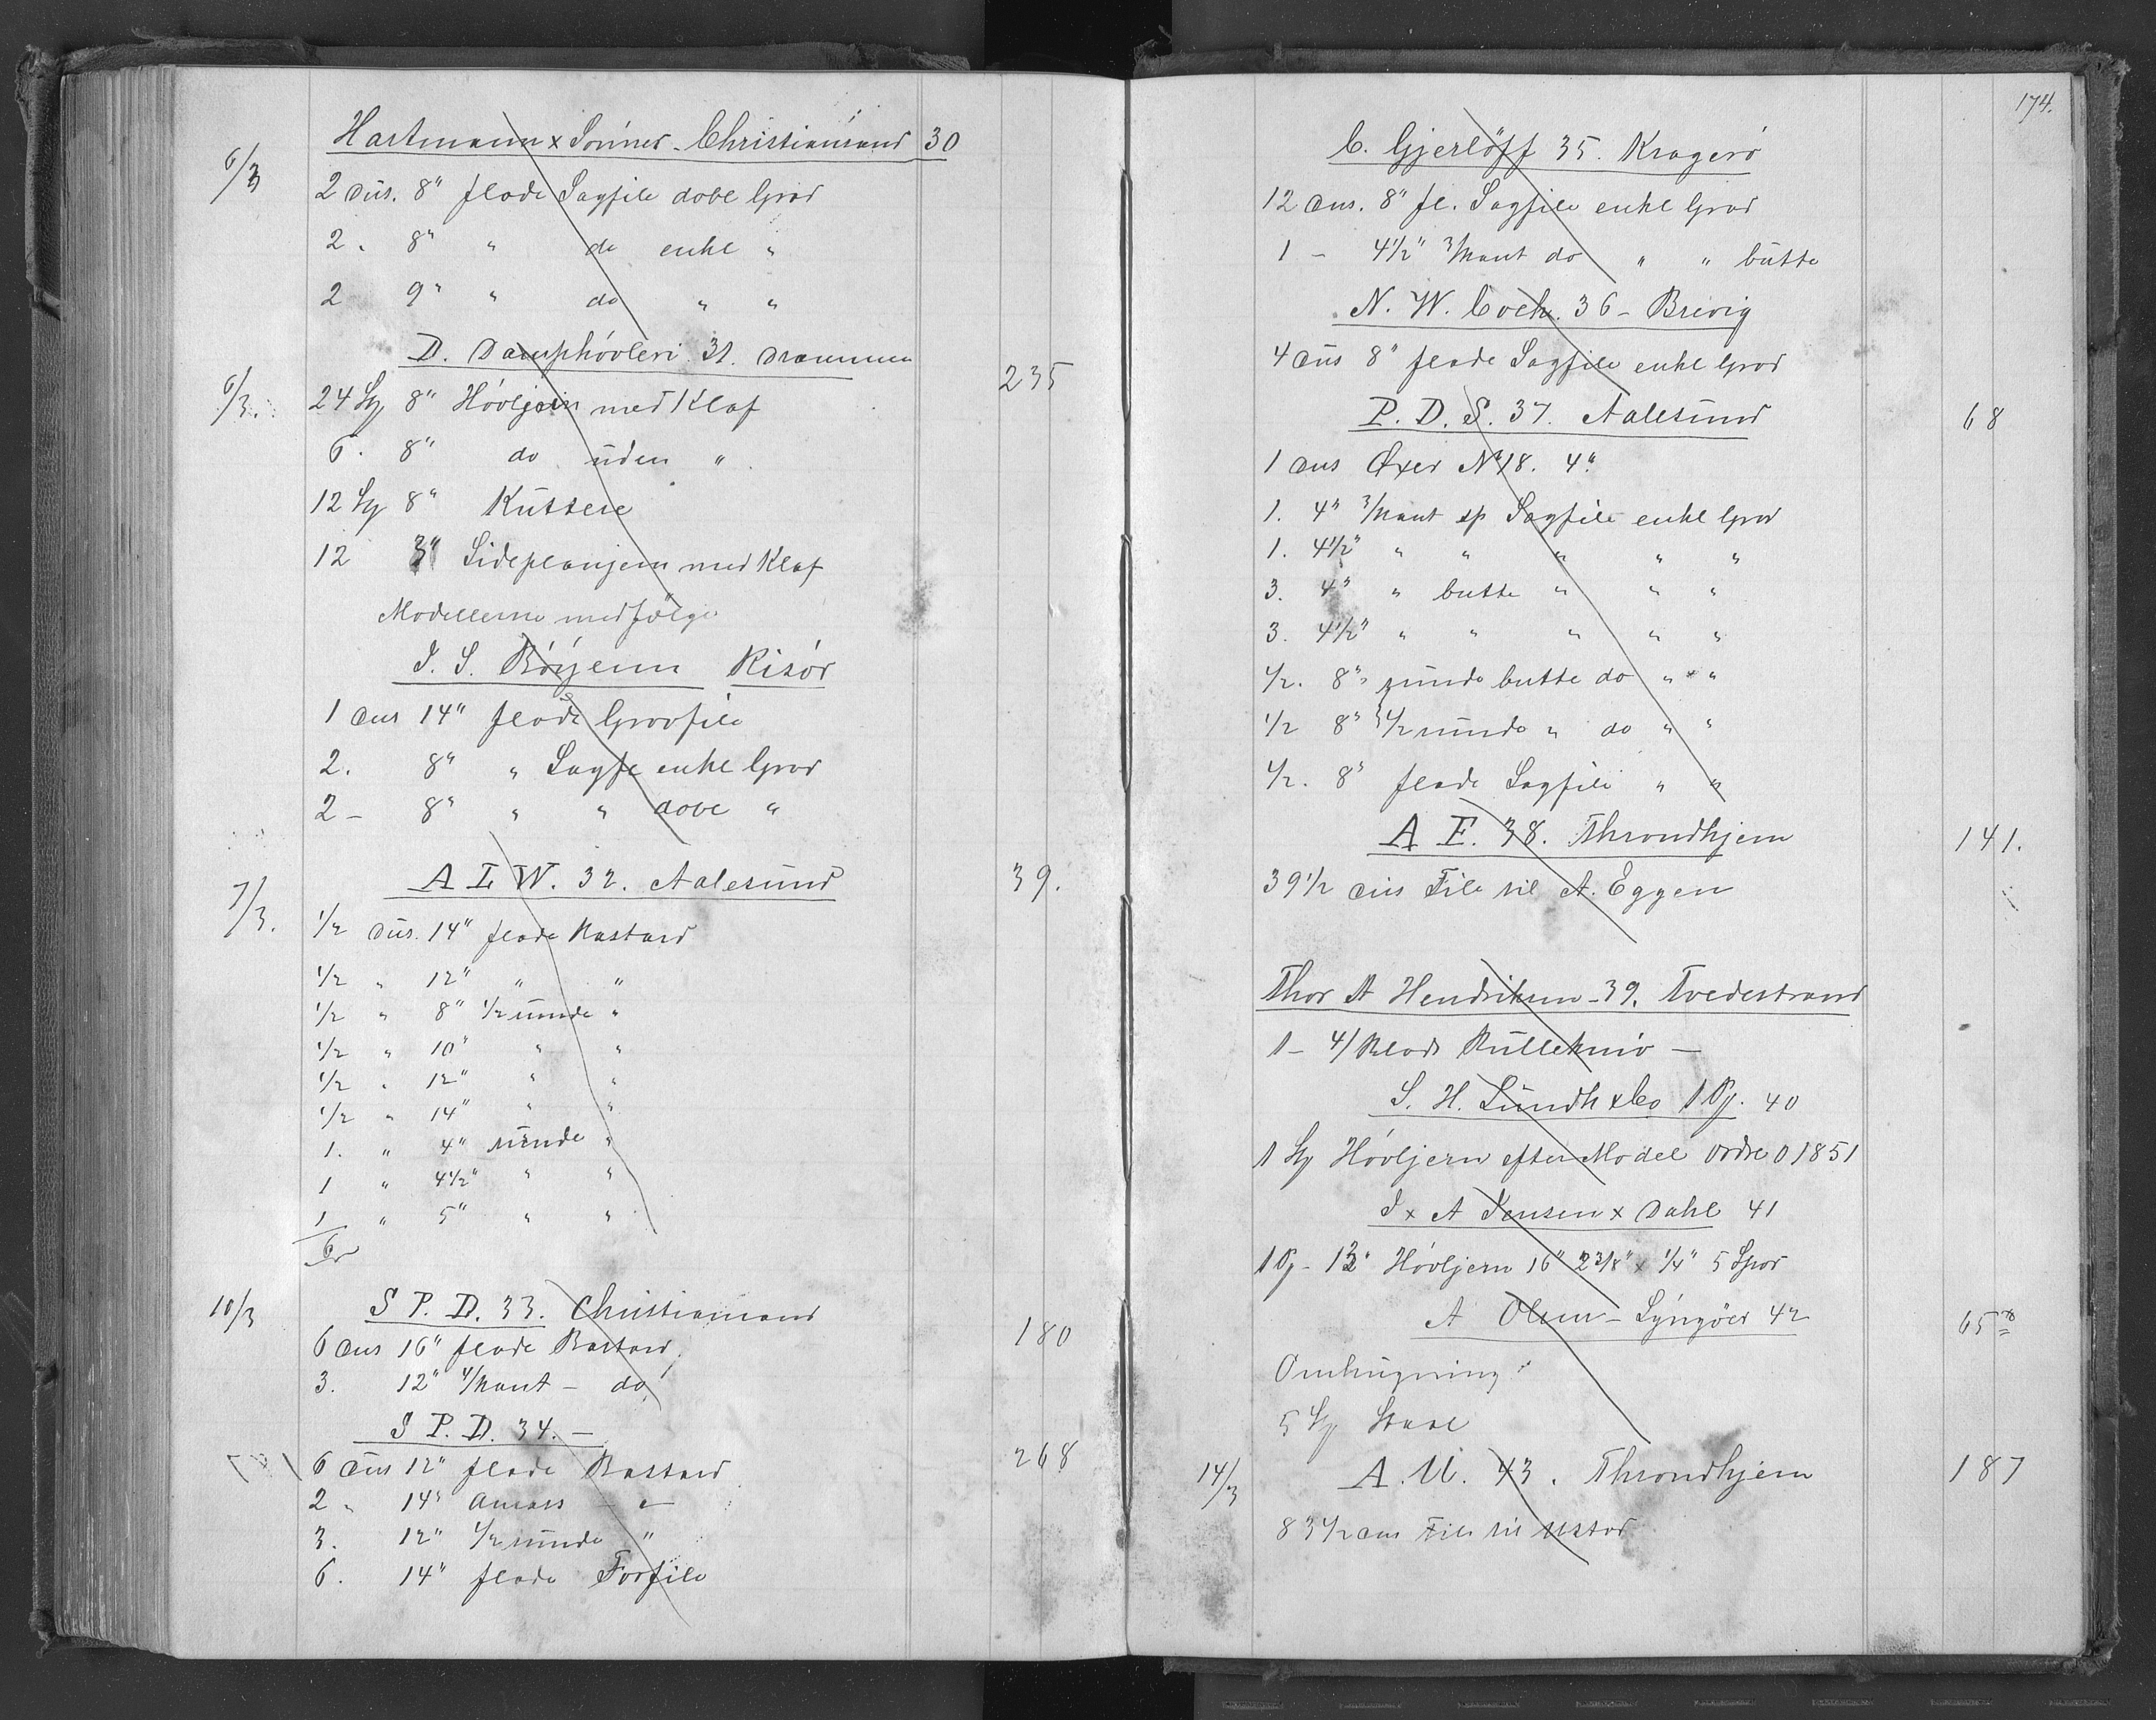 Hartmann x Sönner - Christiansand 30
6/3
2 Dus. 8" flade Sagfile dobl Grad
2 " 8" " do enkl "
2 9" " do " "
D. Damphövleri 31. Drammen
235
6/3. 24 Stg 8" Hövljern med Klaf
6 . 8" do uden "
12 Stg 8" Kuttere
12 3" Sideplanjern med Klaf
Modellerne medfölge
Risör
1 Dus 14" flade Grovfile
2. 8" " Sagfe enkl Grad
2 - 8" " " dobl "
A L W. 32. Aalesund
39.
7/3. 1/2 Dus. 14" flade Bastard
1/2 " 12" " "
1/2 " 8" 1/2 runde "
1/2 " 10" " "
1/2 " 12" " "
1/2 " 14" " "
1. " 4" runde "
1 " 4 1/2" " "
1 " 5" " "
6
10/3 S P. D. 33. Christiansand
180
6 Dus 16" flade Bastard
3. 12" 4/kant - do
S P. D. 34. -
268
6 Dus 12" flade Bastard
2 " 14" Ansats - " -
3. 12" 1/2 runde "
6. 14" flade Forfile
174.
C. Gjerlöff 35. Kragerö
12 Dus. 8" fl. Sagfile enkl Grad
1 - 4 1/2" 3/kant do " " butte
N. W. Coch. 36 - Brevig
4 Dus 8" flade Sagfile enkl Grad
P. D. S. 37. Aalesund
68
1 Dus Øxer No 18. 4"
1. 4" 3/kant sp Sagfile enkl Grad
1. 4 1/2" " " " " "
3. 4" " butte " " "
3. 4 1/2" " " " " "
1/2. 8" runde butte do " "
1/2 8" 1/2 runde " do " "
1/2. 8" flade Sagfile " "
A E. 38. Throndhjem
141.
39 1/2 Dus File til A. Eggen
Thor A Hendriksen - 39. Tvedestrand
1 - 4/Blads Rullekniv -
S. H. Lundh x Co 1 Pg. 40
1 Stg Hövljern efter Model Ordre 01851
J x A Jensen x Dahl 41
1 Pg - 12" Hövljern 16" 2 3/8" x 1/4" 5 Spor
A Olsen - Lyngöer 42
65
Omhugning
5 Stg Staal
14/3 A. U. 43. Throndhjem
187
83 1/2 Dus File til Ustad